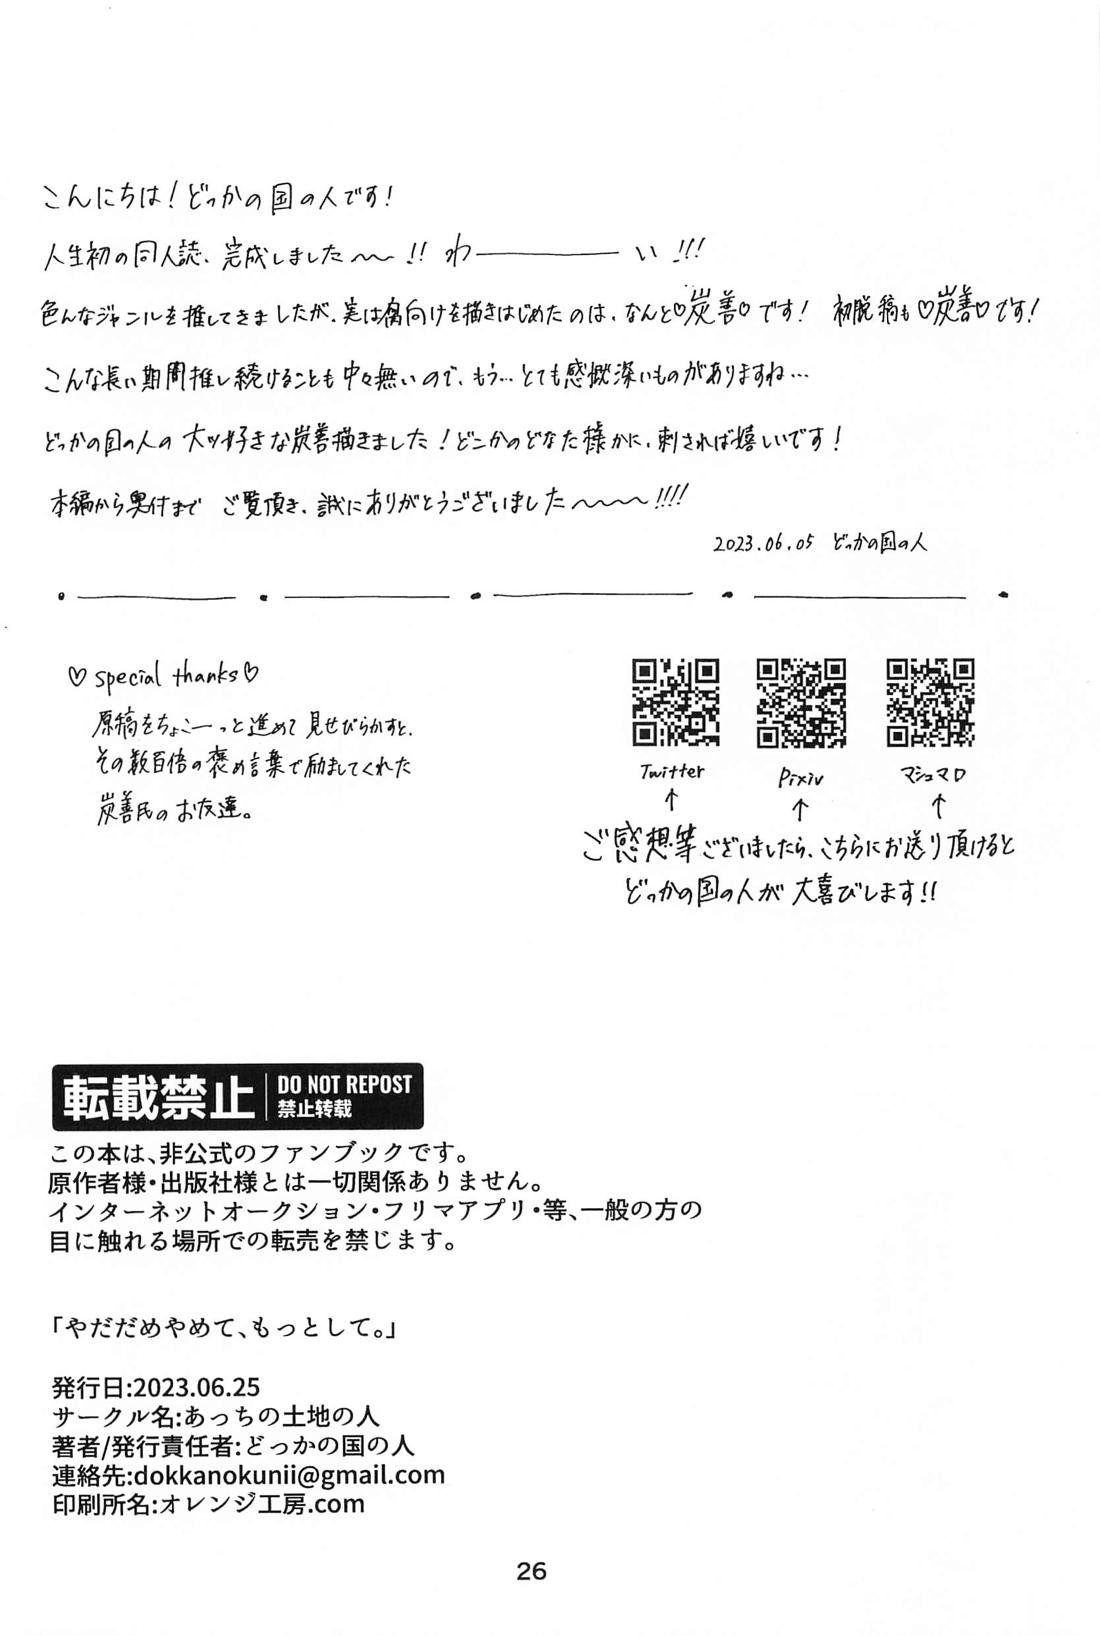 こんにちは!どっかの国の人です!
人生初の同人誌、完成しました〜〜!! わ――――い!!!
色んなジャンルを推してきましたが、実は腐向けを描きはじめたのは、なんと♡炭善♡です! 初脱稿も♡炭善♡です!
こんな長い期間推し続けることも中々無いので、もう…とても感慨深いものがありますね…
どっかの国の人の大ッ好きな炭善描きました!どこかのどなた様かに、刺されば嬉しいです!
本編から奥付まで ご覧頂き、誠にありがとうございました〜〜〜!!!!
2023.06.05 どっかの国の人
♡special thanks♡
原稿をちょこーっと進めて見せびらかすと、
その数百倍の褒め言葉で励ましてくれた
炭善民のお友達。
Twitter Pixiv マシュマロ
↑ ↑ ↑
ご感想等ございましたら、こちらにお送り頂けると
どっかの国の人が大喜びします!!
転載禁止 DO NOT REPOST
禁止转载
この本は、非公式のファンブックです。
原作者様・出版社様とは一切関係ありません。
インターネットオークション・フリマアプリ・等、一般の方の
目に触れる場所での転売を禁じます。
「やだだめやめて、もっとして。」
発行日:2023.06.25
サークル名:あっちの土地の人
著者/発行責任者:どっかの国の人
連絡先:dokkanokunii@gmail.com
印刷所名:オレンジ工房.com
26